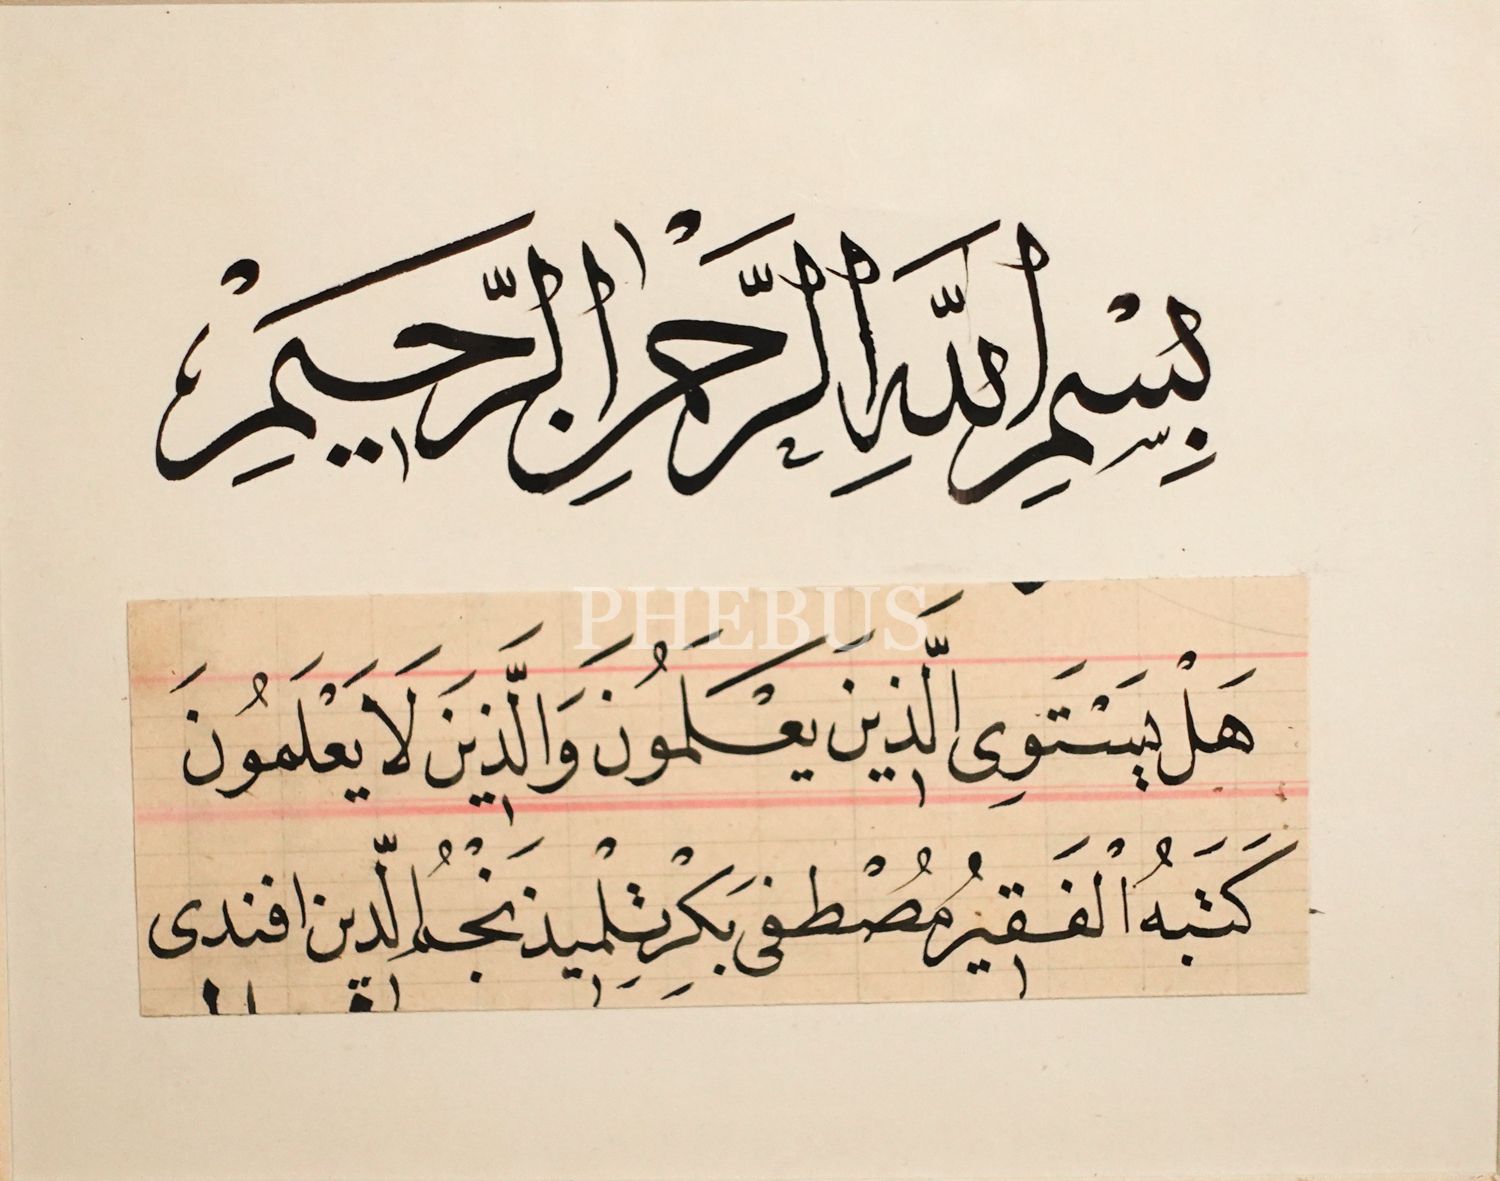 بِسْمِ اللّٰهِ الرَّحْمٰنِ الرَّحِيمِ
PHEBUS
هَلْ يَسْتَوِى الَّذِينَ يَعْلَمُونَ وَالَّذِينَ لَا يَعْلَمُونَ
كَتَبَهُ الْفَقِيرُ مُصْطَفٰى بَكْرِ تِلْمِيذ نَجْمُ الدِّين افندى